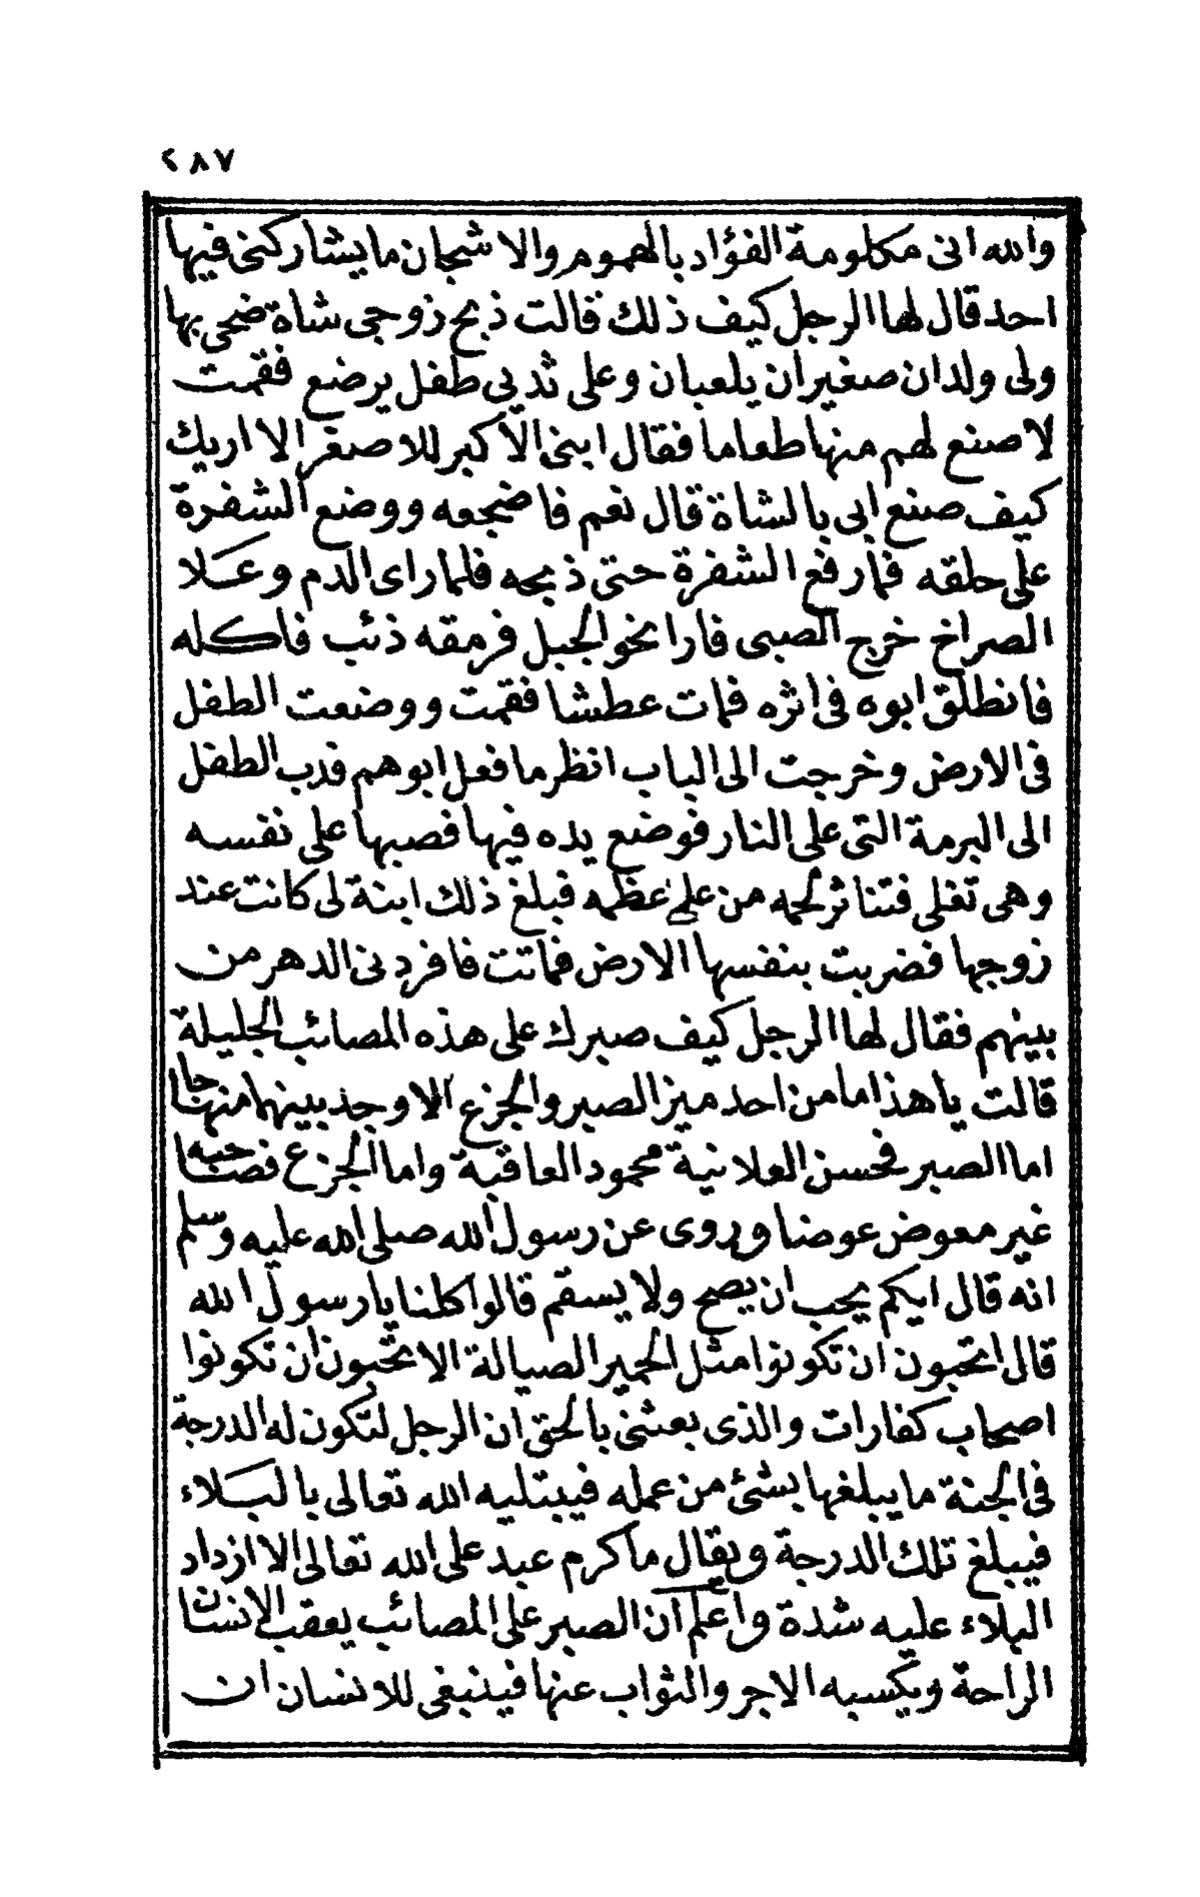 ٢٨٧
والله انى مكلومة الفؤاد بالهموم والاشجان مايشاركنى فيها
احد قال لها الرجل كيف ذلك قالت ذبح زوجى شاة ضحى بها
ولى ولدان صغيران يلعبان وعلى ثديى طفل يرضع فقمت
لاصنع لهم منها طعاما فقال ابنى الاكبر للاصغر الا اريك
كيف صنع ابى بالشاة قال نعم فاضجعه ووضع الشفرة
على حلقه فمارفع الشفرة حتى ذبحه فلما راى الدم وعلا
الصراخ خرج الصبى فارا نحو الجبل فرمقه ذئب فاكله
فانطلق ابوه فى اثره فمات عطشا فقمت ووضعت الطفل
فى الارض وخرجت الى الباب انظر ما فعل ابوهم فدب الطفل
الى البرمة التى على النار فوضع يده فيها فصبها على نفسه
وهى تغلى فتناثر لحمه من على عظمه فبلغ ذلك ابنة لى كانت عند
زوجها فضربت بنفسها الارض فماتت فافردنى الدهر من
بينهم فقال لها الرجل كيف صبرك على هذه المصائب الجليلة
قالت ياهذا مامن احد ميز الصبر والجزع الا وجد بينهما منهاجا
اما الصبر فحسن العلانية محمود العاقبة واما الجزع فصاحبه
غير معوض عوضا وروى عن رسول الله صلى الله عليه وسلم
انه قال ايكم يحب ان يصح ولا يسقم قالوا كلنا يارسول الله
قال اتحبون ان تكونوا مثل الحمير الصيالة الا تحبون ان تكونوا
اصحاب كفارات والذى بعثنى بالحق ان الرجل لتكون له الدرجة
فى الجنة مايبلغها بشئ من عمله فيبتليه الله تعالى بالبلاء
فيبلغ تلك الدرجة ويقال ماكرم عبد على الله تعالى الا ازداد
البلاء عليه شدة واعلم ان الصبر على المصائب يعقب الانسان
الراحة ويكسبه الاجر والثواب عنها فينبغى للانسان ان